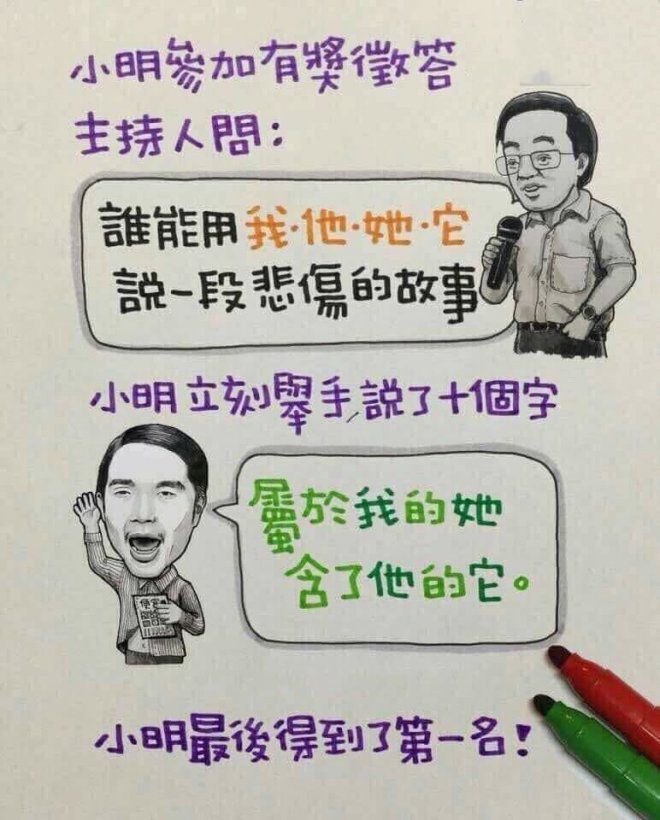 小明參加有獎徵答
主持人問：
誰能用我·他·她·它
說一段悲傷的故事
小明立刻舉手,說了十個字
屬於我的她
含了他的它。
小明最後得到了第一名！